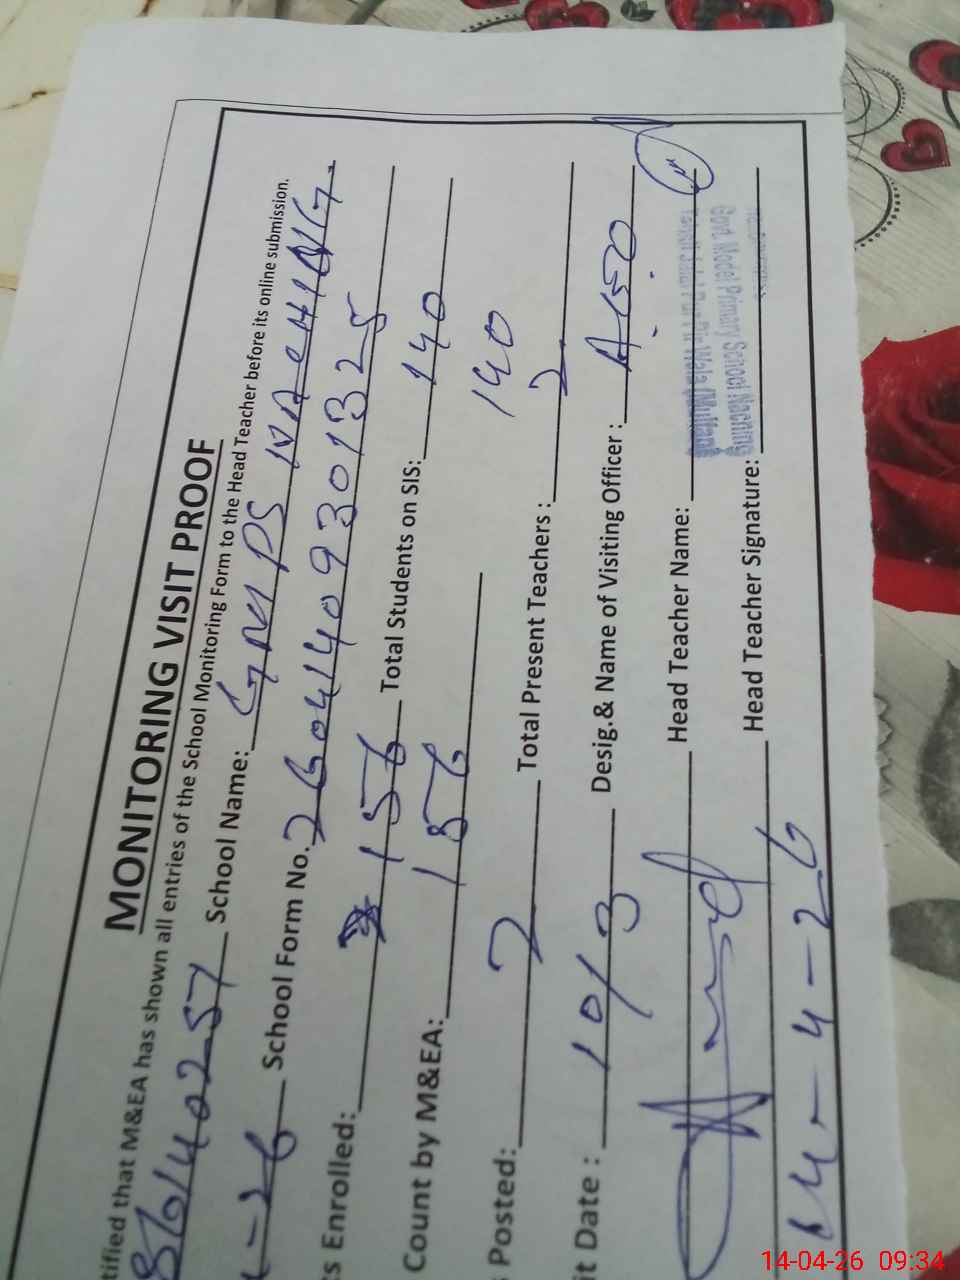 MONITORING VISIT PROOF
tified that M&EA has shown all entries of the School Monitoring Form to the Head Teacher before its online submission.
School Name: GMPS NACHING
-26 School Form No. 26041409301325
s Enrolled: 156 Total Students on SIS: 140
Count by M&EA: 156 140
Posted: 2 Total Present Teachers : 2
it Date : 10/3 Desig.& Name of Visiting Officer :
Head Teacher Name:
Govt. Model Primary School Naching
Head Teacher Signature:
14-4-26
14-04-26 09:34